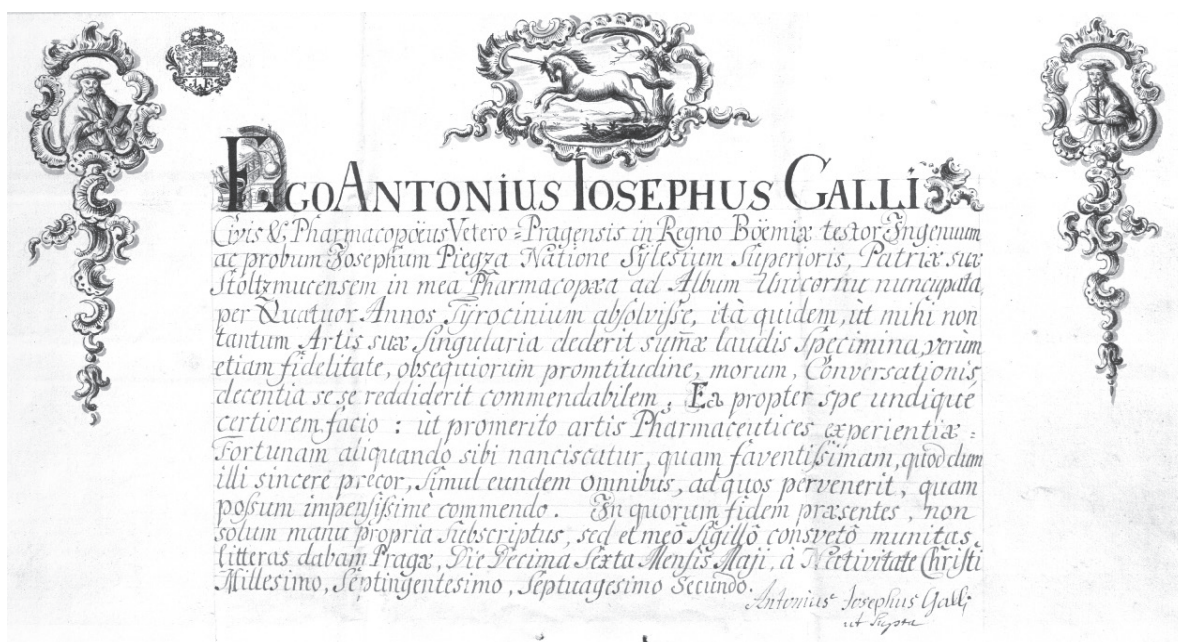 EGO ANTONIUS IOSEPHUS GALLI
Civis & Pharmacopœus Vetero=Pragensis in Regno Böemiæ testor Ingenuum
ac probum Josephum Piegza Natione Sylesium Superioris, Patriæ suæ
Stoltzmucensem in mea Pharmacopæa ad Album Unicornu nuncupata,
per Quatuor Annos Tyrocinium absolvisse, ità quidem, ùt mihi non
tantum Artis suæ Singularia dederit sum̄æ laudis Specimina, verum
etiam fidelitate, obsequiorum promtitudine, morum, Conversationis
decentia se se reddiderit commendabilem, Ea propter spe undiquè
certiorem facio : ùt promerito artis Pharmaceutices experientiæ =
Fortunam aliquando sibi nanciscatur, quam faventissimam, quod dum
illi sincerè precor, Simul eundem omnibus, ad quos pervenerit, quam
possum impensissimè commendo. In quorum fidem præsentes, non
solum manu propria subscriptus, sed et meô Sigillô consvetô munitas,
litteras dabam Pragæ, Die Decima Sexta Mensis Maji, à Nativitate Christi
Millesimo, Septingentesimo, Septuagesimo Secundo.
Antonius Josephus Galli
ut Supra